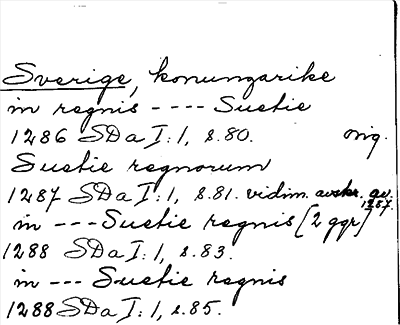 Sverige, konungarike
in regnis ---- Suetie
1286 SDa I:1, s.80. orig.
Suetie regnorum
1287 SDa I:1, s.81. vidim. avskr. av 1287.
in --- Suetie regnis [2 ggr]
1288 SDa I:1, s.83.
in --- Suetie regnis
1288 SDa I:1, s.85.